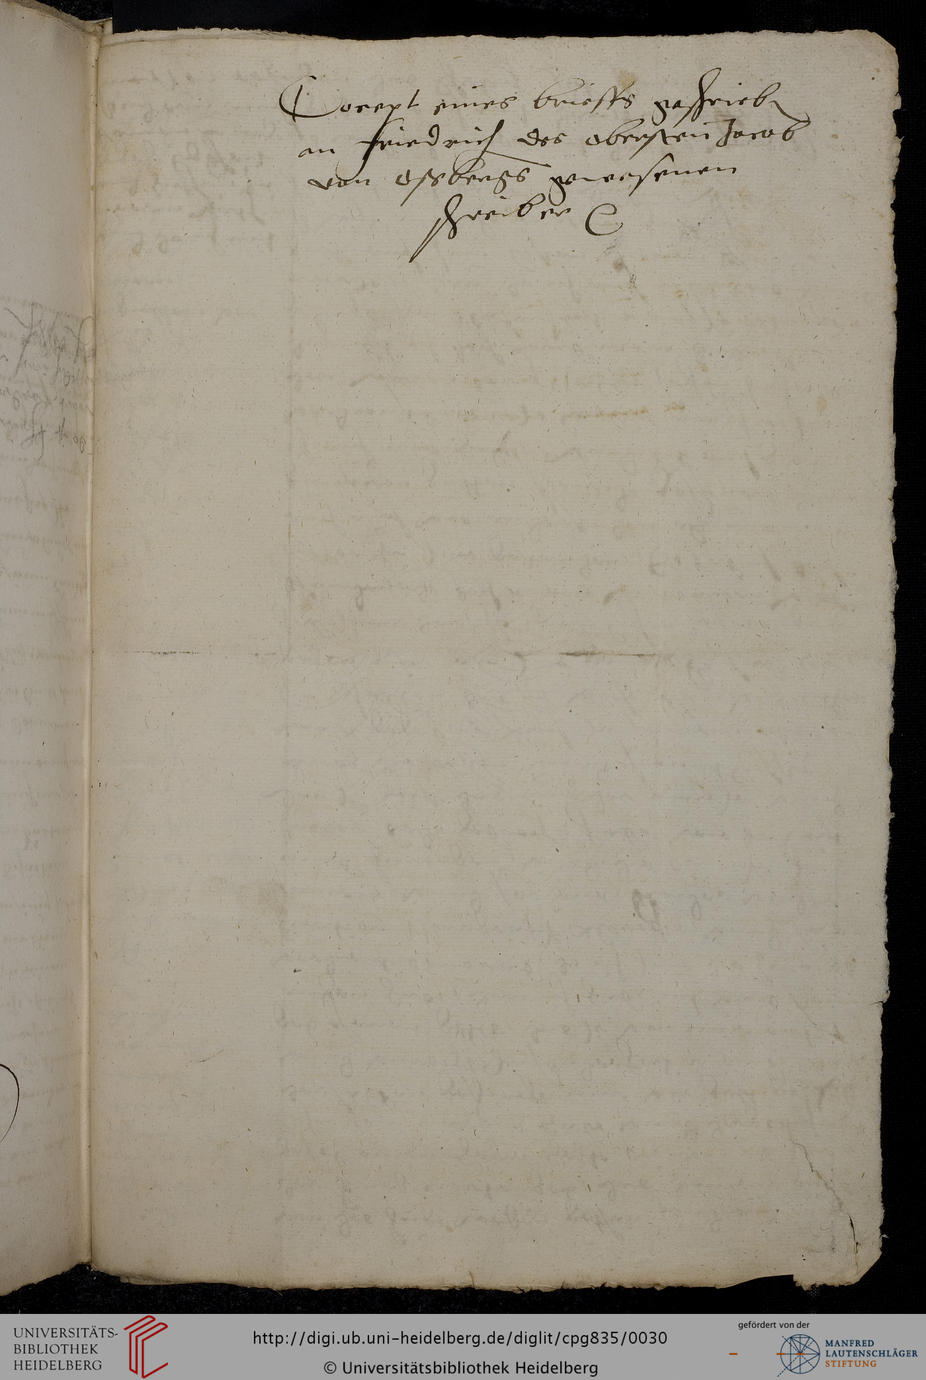 Concept eines brieffs geschrieb
an friedrich des obersten Jacob
von Ossbergs gewesenen
schreiber
UNIVERSITÄTS-
BIBLIOTHEK
HEIDELBERG
http://digi.ub.uni-heidelberg.de/diglit/cpg835/0030
© Universitätsbibliothek Heidelberg
gefördert von der
MANFRED
LAUTENSCHLÄGER
STIFTUNG